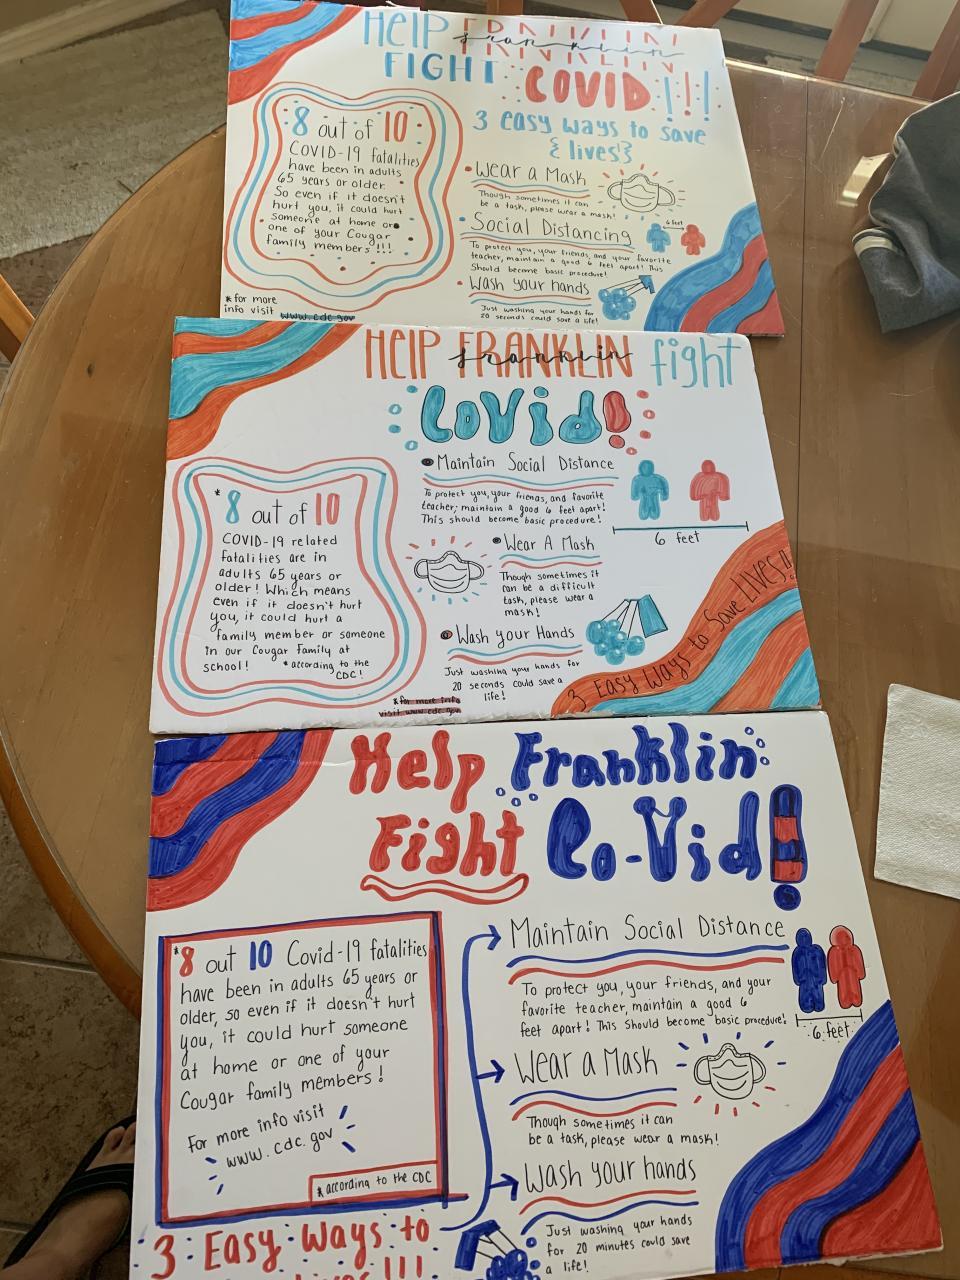 HELP FRANKLIN
franklin
FIGHT COVID!!!
3 easy ways to save
{ lives! }
8 out of 10
COVID-19 fatalities
have been in adults
65 years or older.
So even if it doesn't
hurt you, it could hurt
someone at home or
one of your Cougar
family members!!!
*for more
info visit www.cdc.gov
Wear a Mask
Though sometimes it can
be a task, please wear a mask!
Social Distancing
6 feet
To protect you, your friends, and your favorite
teacher, maintain a good 6 feet apart! This
Should become basic procedure!
Wash your hands
Just washing your hands for
20 seconds could save a life!
HELP FRANKLIN fight
franklin
CoVid!
*8 out of 10
COVID-19 related
fatalities are in
adults 65 years or
older! Which means
even if it doesn't hurt
you, it could hurt a
family member or someone
in our Cougar Family at
school! *according to the
CDC!
*for more info
visit www.cdc.gov
Maintain Social Distance
To protect you, your friends, and favorite
teacher; maintain a good 6 feet apart!
This should become basic procedure!
6 feet
Wear A Mask
Though sometimes it
can be a difficult
task, please wear a
mask!
Wash your Hands
Just washing your hands for
20 seconds could save a
life!
3 Easy Ways to Save LIVES!!
Help Franklin
Fight Co-Vid!
*8 out 10 Covid-19 fatalities
have been in adults 65 years or
older, so even if it doesn't hurt
you, it could hurt someone
at home or one of your
Cougar family members!
For more info visit
www.cdc.gov
*according to the CDC
3 Easy Ways to
lives!!!
Maintain Social Distance
To protect you, your friends, and your
favorite teacher, maintain a good 6
feet apart! This Should become basic procedure!
6 feet
Wear a Mask
Though sometimes it can
be a task, please wear a mask!
Wash your hands
Just washing your hands
for 20 minutes could save
a life!